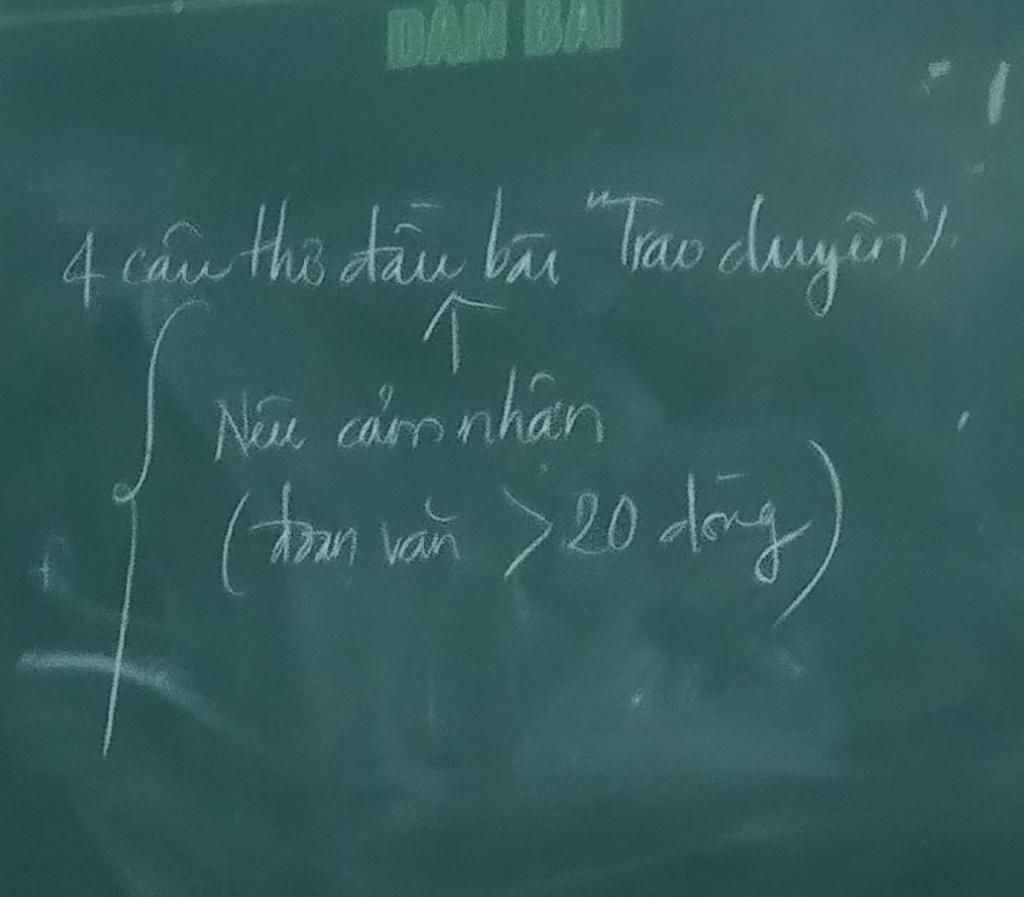 DÀN BÀI
4 câu thơ đầu bài "Trao duyên".
↑
Nêu cảm nhận
(đoạn văn > 20 dòng)